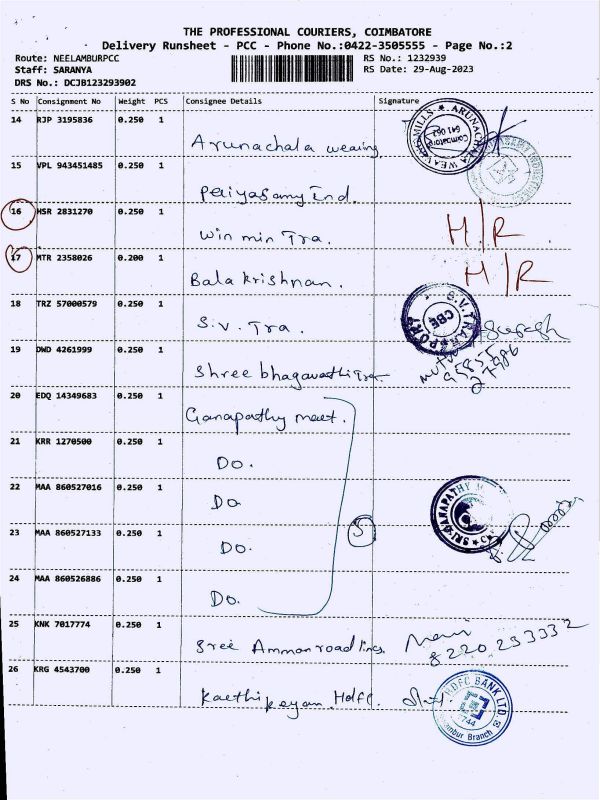 THE PROFESSIONAL COURIERS, COIMBATORE
Delivery Runsheet - PCC - Phone No.:0422-3505555 - Page No.:2
Route: NEELAMBURPCC RS No.: 1232939
Staff: SARANYA RS Date: 29-Aug-2023
DRS No.: DCJB123293902
S No Consignment No Weight PCS Consignee Details Signature
14 RJP 3195836 0.250 1
Arunachala weaving
ARUNACHALA WEAV MILLS
Coimbatore
641 062
15 VPL 943451485 0.250 1
Periyasamy Ind.
16 HSR 2831270 0.250 1
win min Tra. H/R
17 MTR 2358026 0.200 1
Bala krishnan. H/R
18 TRZ 57000579 0.250 1
S.V. Tra.
S.V.TRANSPORT
CBE
19 DWD 4261999 0.250 1
Shree bhagavathi Tra
20 EDQ 14349683 0.250 1
Ganapathy meet.
21 KRR 1270500 0.250 1
Do.
22 MAA 860527016 0.250 1
Do
SRI GANAPATHY
23 MAA 860527133 0.250 1
Do. 5
24 MAA 860526886 0.250 1
Do.
25 KNK 7017774 0.250 1
Sree Amman roadlines
8220.233332
26 KRG 4543700 0.250 1
Kaethikeyan. Hdfc.
HDFC BANK LTD.
744
Branch